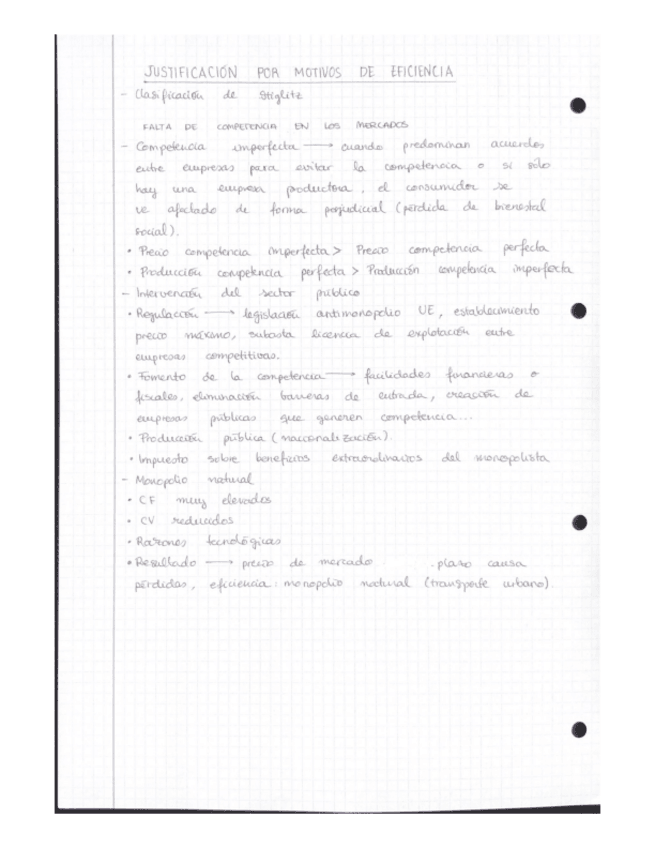 JUSTIFICACIÓN POR MOTIVOS DE EFICIENCIA
- Clasificación de Stiglitz
FALTA DE COMPETENCIA EN LOS MERCADOS
- Competencia imperfecta → cuando predominan acuerdos
entre empresas para evitar la competencia o si sólo
hay una empresa productora, el consumidor se
ve afectado de forma perjudicial (pérdida de bienestal
social).
• Precio competencia imperfecta > Precio competencia perfecta
• Producción competencia perfecta > Producción competencia imperfecta
- Intervención del sector público
• Regulación → legislación antimonopolio UE, establecimiento
precio máximo, subasta licencia de explotación entre
empresas competitivas.
• Fomento de la competencia → facilidades financieras o
fiscales, eliminación barreras de entrada, creación de
empresas públicas que generen competencia...
• Producción pública (nacionalización).
• Impuesto sobre beneficios extraordinarios del monopolista
- Monopolio natural
• CF muy elevados
• CV reducidos
• Razones tecnológicas
• Resultado → precio de mercado . plazo causa
pérdidas, eficiencia: monopolio natural (transporte urbano).